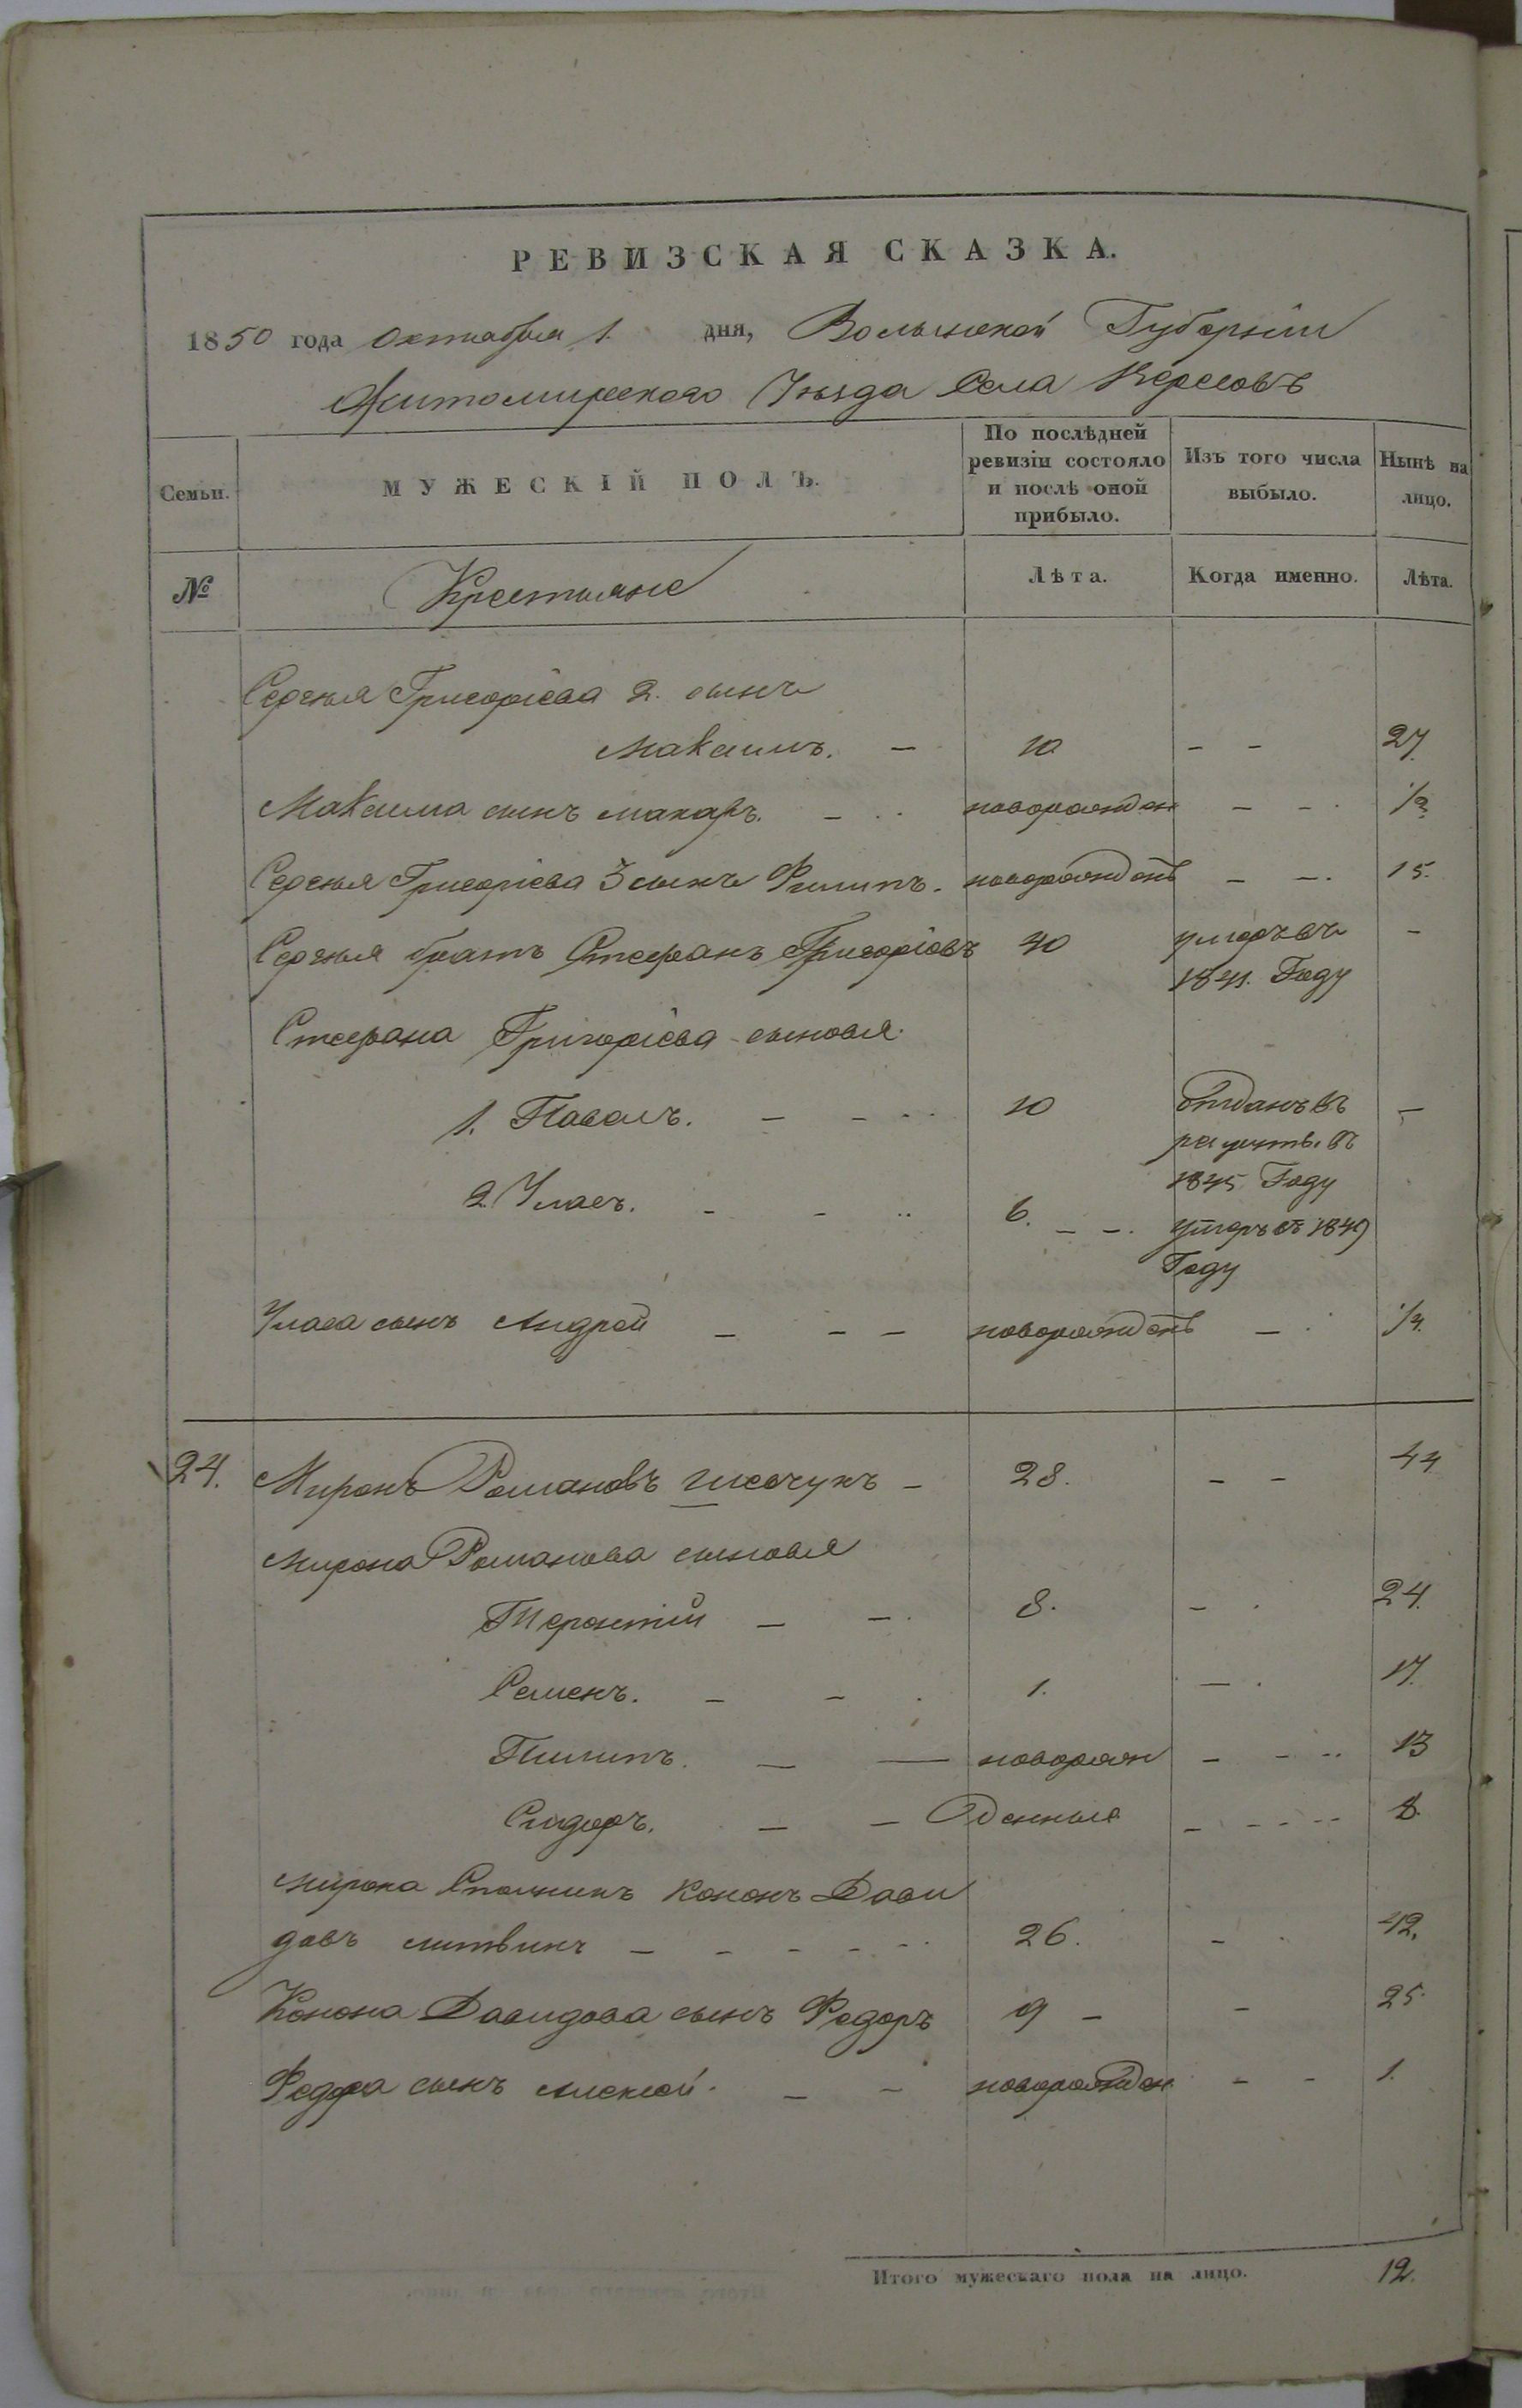 РЕВИЗСКАЯ СКАЗКА.
1850 года Октября 1. дня, Волынской Губерніи
Житомирского Уѣзда Села Вересовъ
Семьи. МУЖЕСКІЙ ПОЛЪ. По послѣдней ревизіи состояло и послѣ оной прибыло. Изъ того числа выбыло. Нынѣ на лицо.
№ Крестьяне Лѣта. Когда именно. Лѣта.
Сергѣя Григоріева 2. сынъ
Максимъ. — 10 - - 27.
Максима сынъ макаръ. - новорожден - - 1/2
Сергѣя Григоріева 3 сынъ Филипъ. новорожденъ - - 15.
Сергѣя братъ Стефанъ Григоріевъ 40 умеръ въ -
1841. Году
Стефана Григоріева сыновья.
1. Павелъ. - - 10 отданъ въ -
рекруты. въ
1845 Году
2. Уласъ. - - 6. - - умеръ въ 1849
Году
Уласа сынъ Андрей - - - новорожденъ - 1/4.
24. Миронъ Романовъ - 28. - - 44
Мирона Романова сыновья
Терентій - - 8. - 24.
Семенъ. - - 1. - 17.
Пилипъ. - — новорож - - 13
Сидоръ. - - денные - - - - 8.
Мирона Спольникъ Кононъ Дави
довъ литвинъ - - - - - 26. - 42.
Конона Давидова сынъ Федоръ 9 - - 25.
Федора сынъ Алексей. - - новорожден - - 1.
Итого мужескаго пола на лицо. 12.